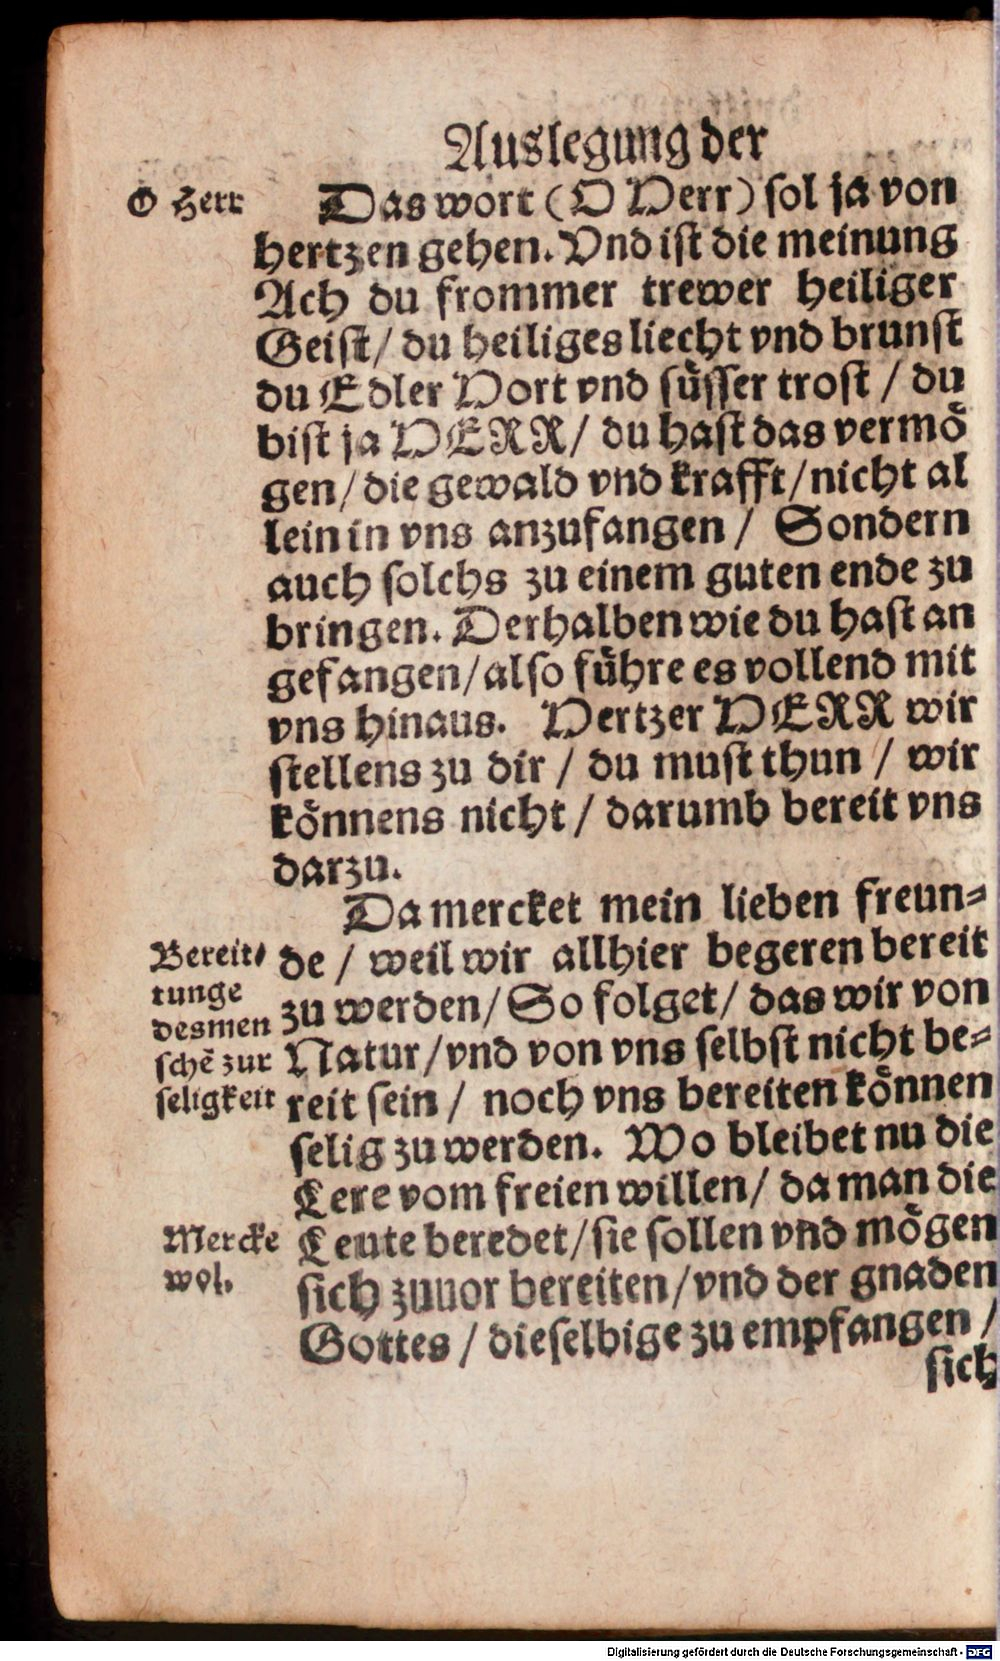 Auslegung der
O Herr
Das wort (O HErr) sol ja von
hertzen gehen. Vnd ist die meinung
Ach du frommer trewer heiliger
Geist / du heiliges liecht vnd brunst
du Edler Hort vnd süsser trost / du
bist ja HERR / du hast das vermö
gen / die gewald vnd krafft / nicht al
lein in vns anzufangen / Sondern
auch solchs zu einem guten ende zu
bringen. Derhalben wie du hast an
gefangen / also führe es vollend mit
vns hinaus. Hertzer HERR wir
stellens zu dir / du must thun / wir
können​s nicht / darumb bereit vns
darzu.
Da mercket mein lieben freun⸗
de / weil wir allhier begeren bereit
zu werden / So folget / das wir von
Natur / vnd von vns selbst nicht be⸗
reit sein / noch vns bereiten können
selig zu werden. Wo bleibet nu die
Lere vom freien willen / da man die
Leute beredet / sie sollen vnd mögen
sich zuuor bereiten / vnd der gnaden
Gottes / dieselbige zu empfangen /
sich
Bereit⸗
tunge
des men
schẽ zur
seligkeit
Mercke
wol.
Digitalisierung gefördert durch die Deutsche Forschungsgemeinschaft - DFG